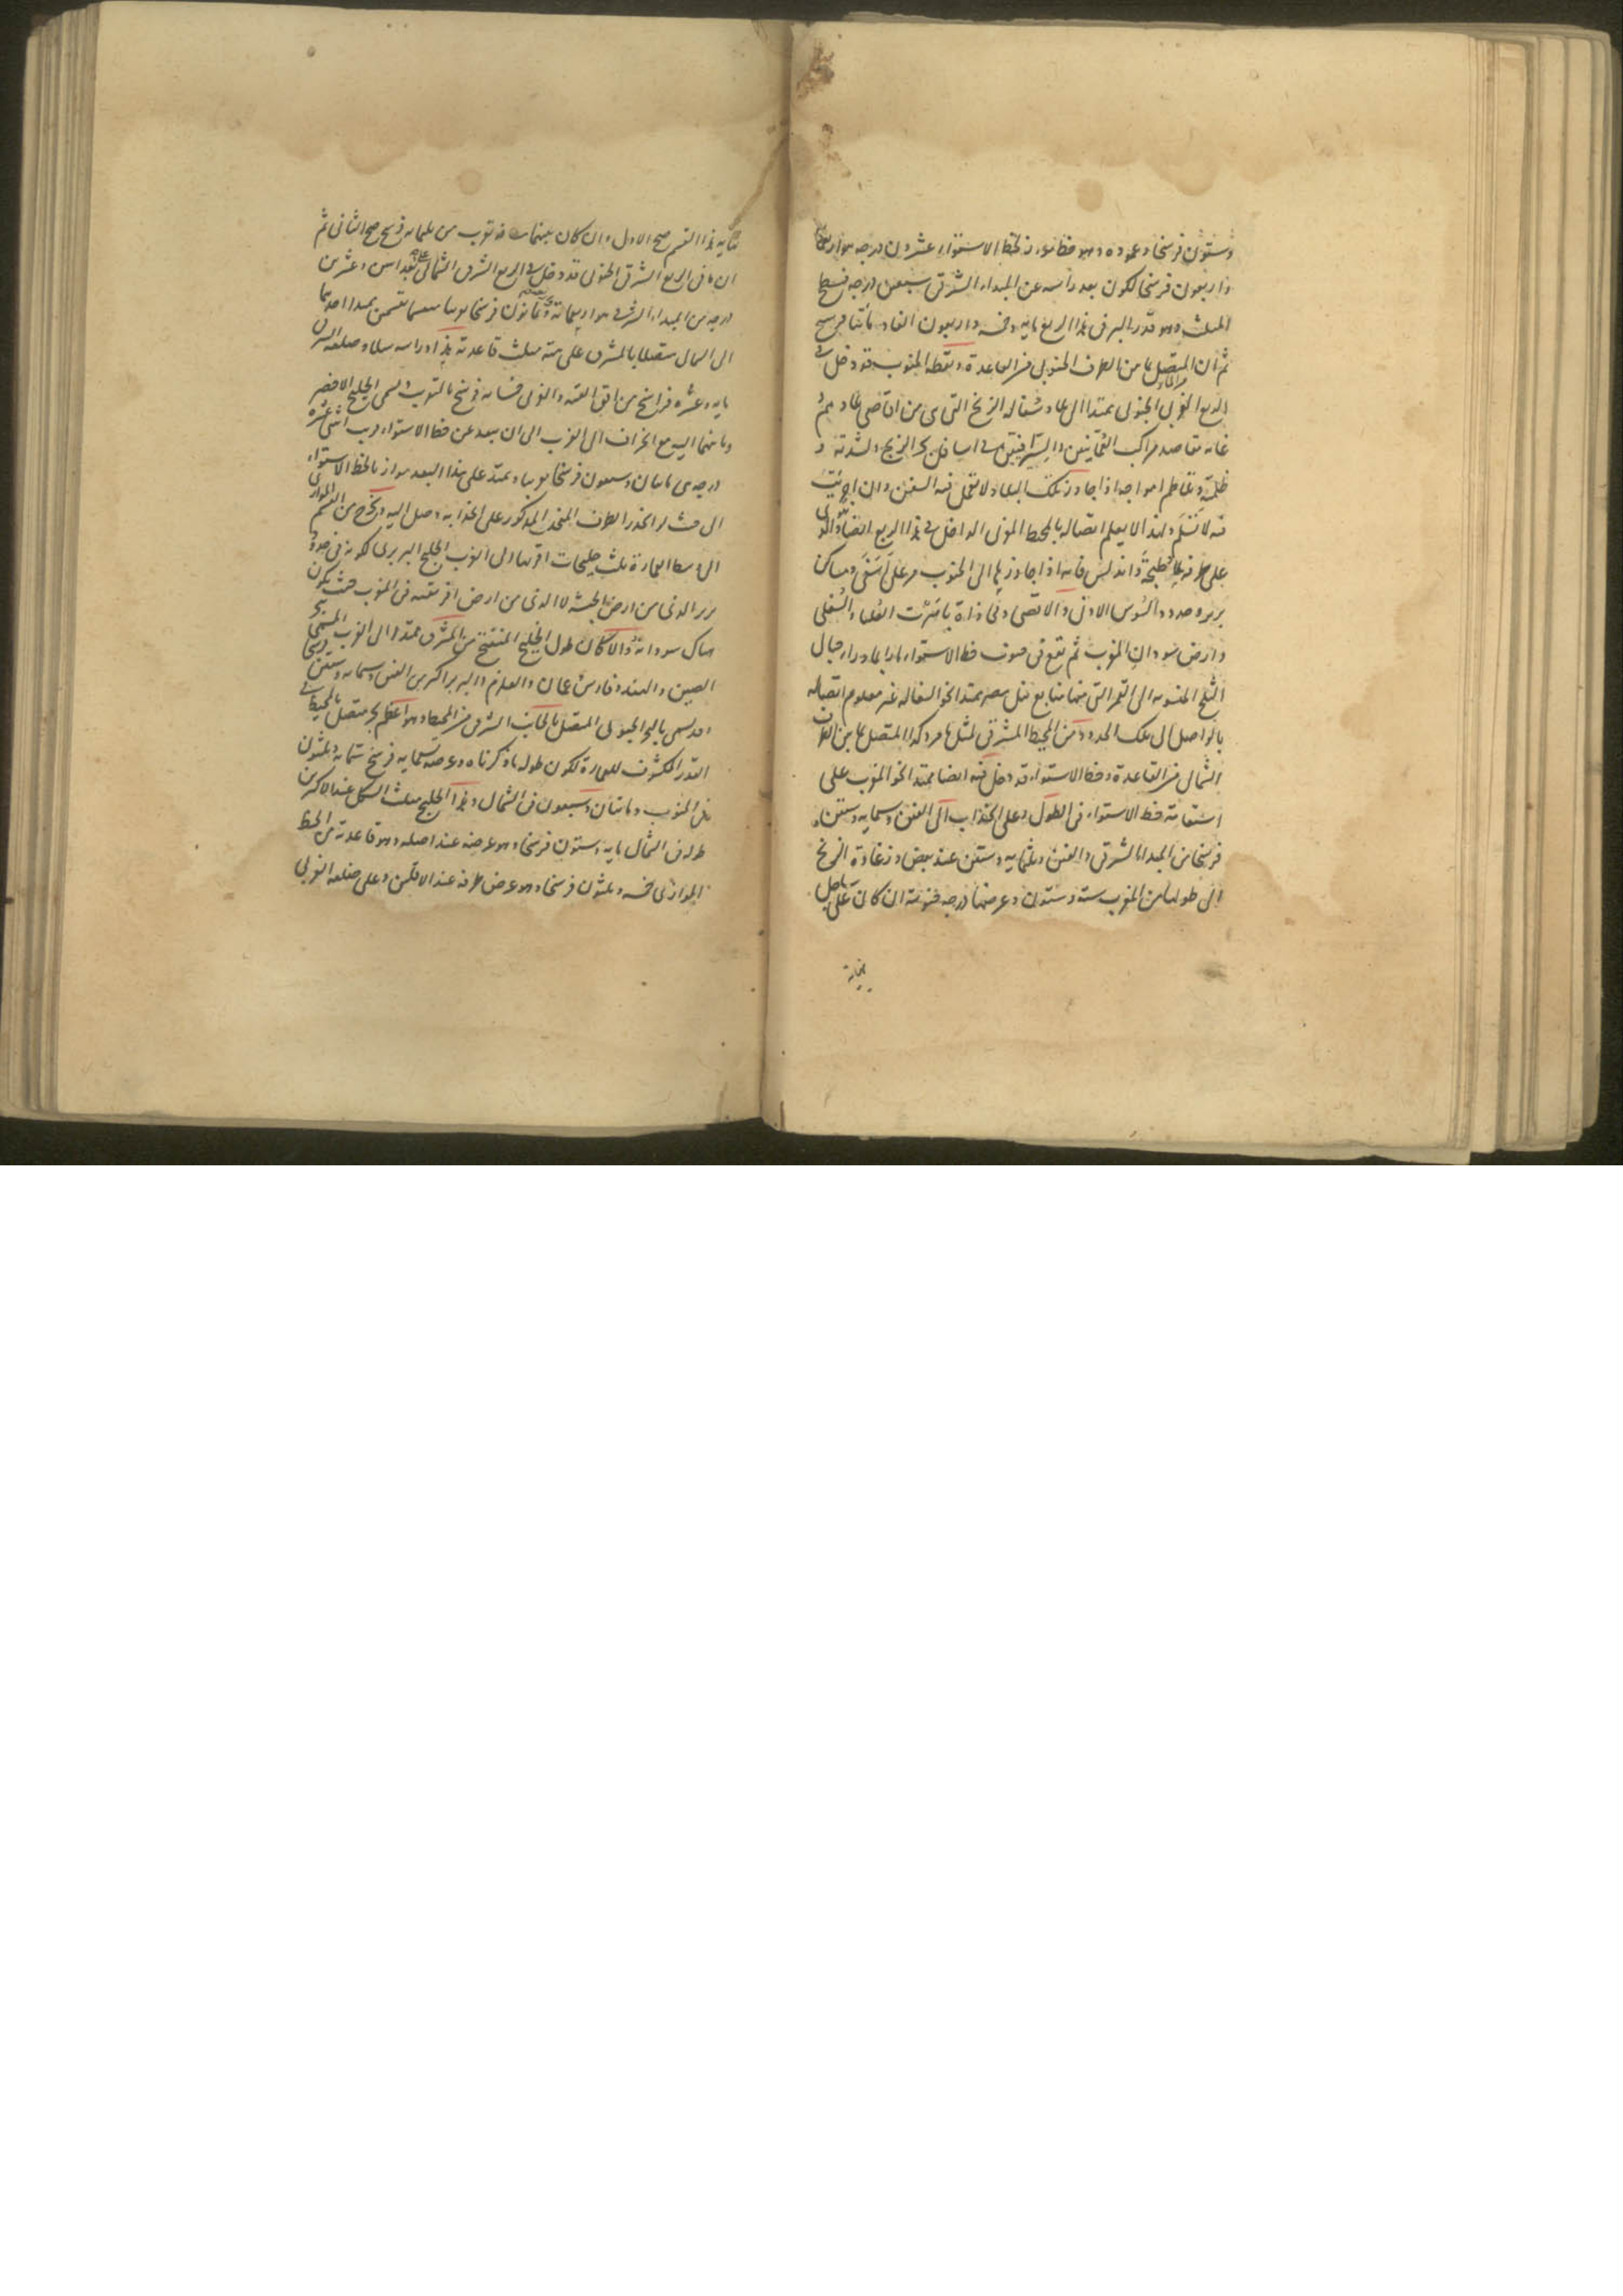 وستون فرسخا وعموده وهو خط مواز لخط الاستواء عشرون درجه هو اربعمايه
واربعون فرسخا لكون بعد راسه عن المبداء الشرقى سبعين درجه فسطح
المثلث وهو قدر البر فى هذا الربع مايه وخمسه واربعون الفا ومائتا فرسخ
ثم ان المتصل بها من الطرف الجنوبى من القاعدة ونقطه الجنوب قد دخل فى
الربع الغربى الجنوبى ممتدا الى محاذ سُفاله الزنج التى هى من اقاصى
غاية مقاصد مراكب العُمانيين والسيرافيين فى اسافل بحر الزنج ولشدته و
ظلمته وتعاظم امواجه اذا جاوز تلك البلاد لا تحمل فيه السفن وان اجريت
فيه لا تسلم ولهذا لا يعلم اتصاله بالمحيط الغربى الداخل فى هذا الربع ايضا والذى
على طرفه طنجة واندلس فانه اذا جاوزها الى الجنوب مر على اسفى ومساكن
بربر وحدود السوس الادنى والاقصى وفى محاذاة تامَدّت العُليا والسُفلى
وارض سودان المغرب ثم يقع فى جنوب خط الاستواء مارا بما وراء جبال
الثلج المنسوبه الى القمر التى منها منابع نيل مصر ممتدا نحو السفاله غير معلوم اتصاله
بالواصل الى تلك الحدود من المحيط المشرقى لمثل ما مر وكذا المتصل بها من الطرف
الشمالى من القاعدة وخط الاستواء قد دخل فيه ايضا ممتدا نحو المغرب على
استقامة خط الاستواء فى الطول على انجذاب الى الفين وسمايه وستين
فرسخا من المبدا الشرقى والفين وثلثمايه وستين عند بعض وزغاوة الزنج
التى طولها من المغرب ست وستون وعرضها درجه جنوبية ان كان على ساحل
نهاية
نهايه هذا القسم صح الاول وان كان بينهما مسافه تقرب من ثلثمايه فرسخ صح الثانى ثم
ان ما فى الربع الشرقى الجنوبى قد دخل فى الربع الشرقى الشمالى على بعد اثنين وعشرين
درجه من المبداء الشرقى هو اربعمائة وثمانون فرسخا تقريبا منقسما بقسمين يمتد احدهما
الى الشمال متصلا بالمشرق على هيئة مثلث قاعدته هذا وراسه شمالا وضلعه الشرقى
مايه وعشره فراسخ من افق القبة والغربى خمسمايه فرسخ بالتقريب وسمى الخليج الاخضر
وثانيهما اليه مع انحراف الى الغرب الى ان يبعد عن خط الاستواء قريب اثنى عشرة
درجه هى مايتان وسبعون فرسخا تقريبا ويمتد على هذا البعد مواز يا لخط الاستواء
الى حيث لو انحدر الطرف المنجذب المذكور على انجذابه وصل اليه ويخرج من القسم الموازى
الى وسط العمارة ثلث خليجات اقربها الى الغرب الخليج البربرى لكونه فى حدود
بربر التى من ارض الحبشه لا التى من ارض افريقيه فى المغرب حيث يكون
هناك سودانه والا لكان طول الخليج المنتفخ من المشرق ممتدا الى الغرب المسمى ببحر
الصين والهند وفارس وعمان والقلزم والبربر اكثر من الفين وسمايه وستين وسمى
وقد يسمى بالبحر الجنوبى المتصل بالجانب الشرقى من المحيط وهو اعظم بحر متصل بالمحيط فى
القدر المكشوف للعمارة لكون طوله ما ذكرناه وعرضه سمايه فرسخ ستمايه وثلثون
من الجنوب ومائتان وسبعون فى الشمال وهذا الخليج مثلث الشكل عند الاكثرين
طوله فى الشمال مايه وستون فرسخا وهو عرضه عند اصله وهو قاعدته من الخط
الموازى خمسه وثلثون فرسخا وهو عرض طرفه عند الاقلين وعلى ضلعه الغربى